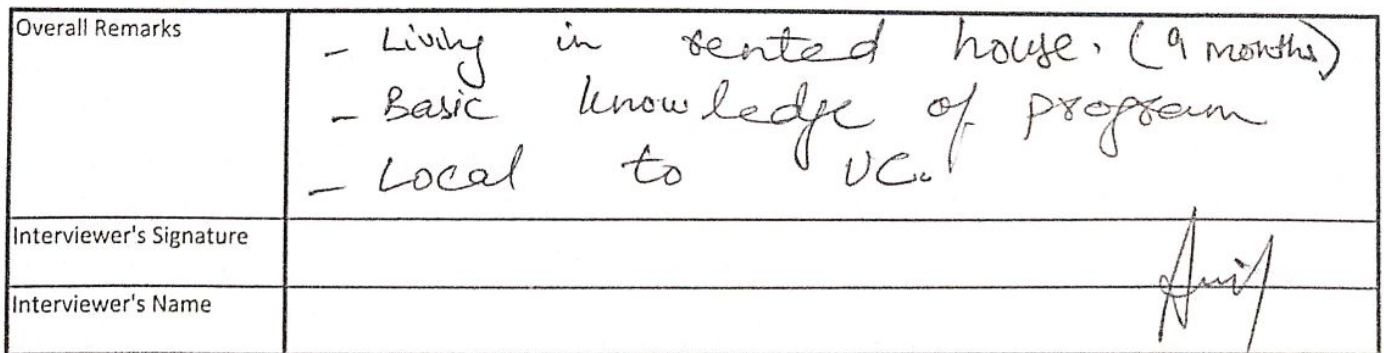 Overall Remarks
- Living in rented house. (9 months)
- Basic knowledge of program
- Local to UC.
Interviewer's Signature
Interviewer's Name